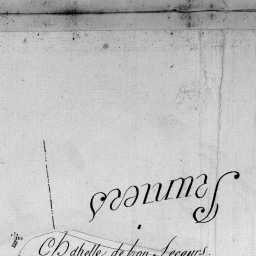 Pruniers
Chapelle de bon Secours.